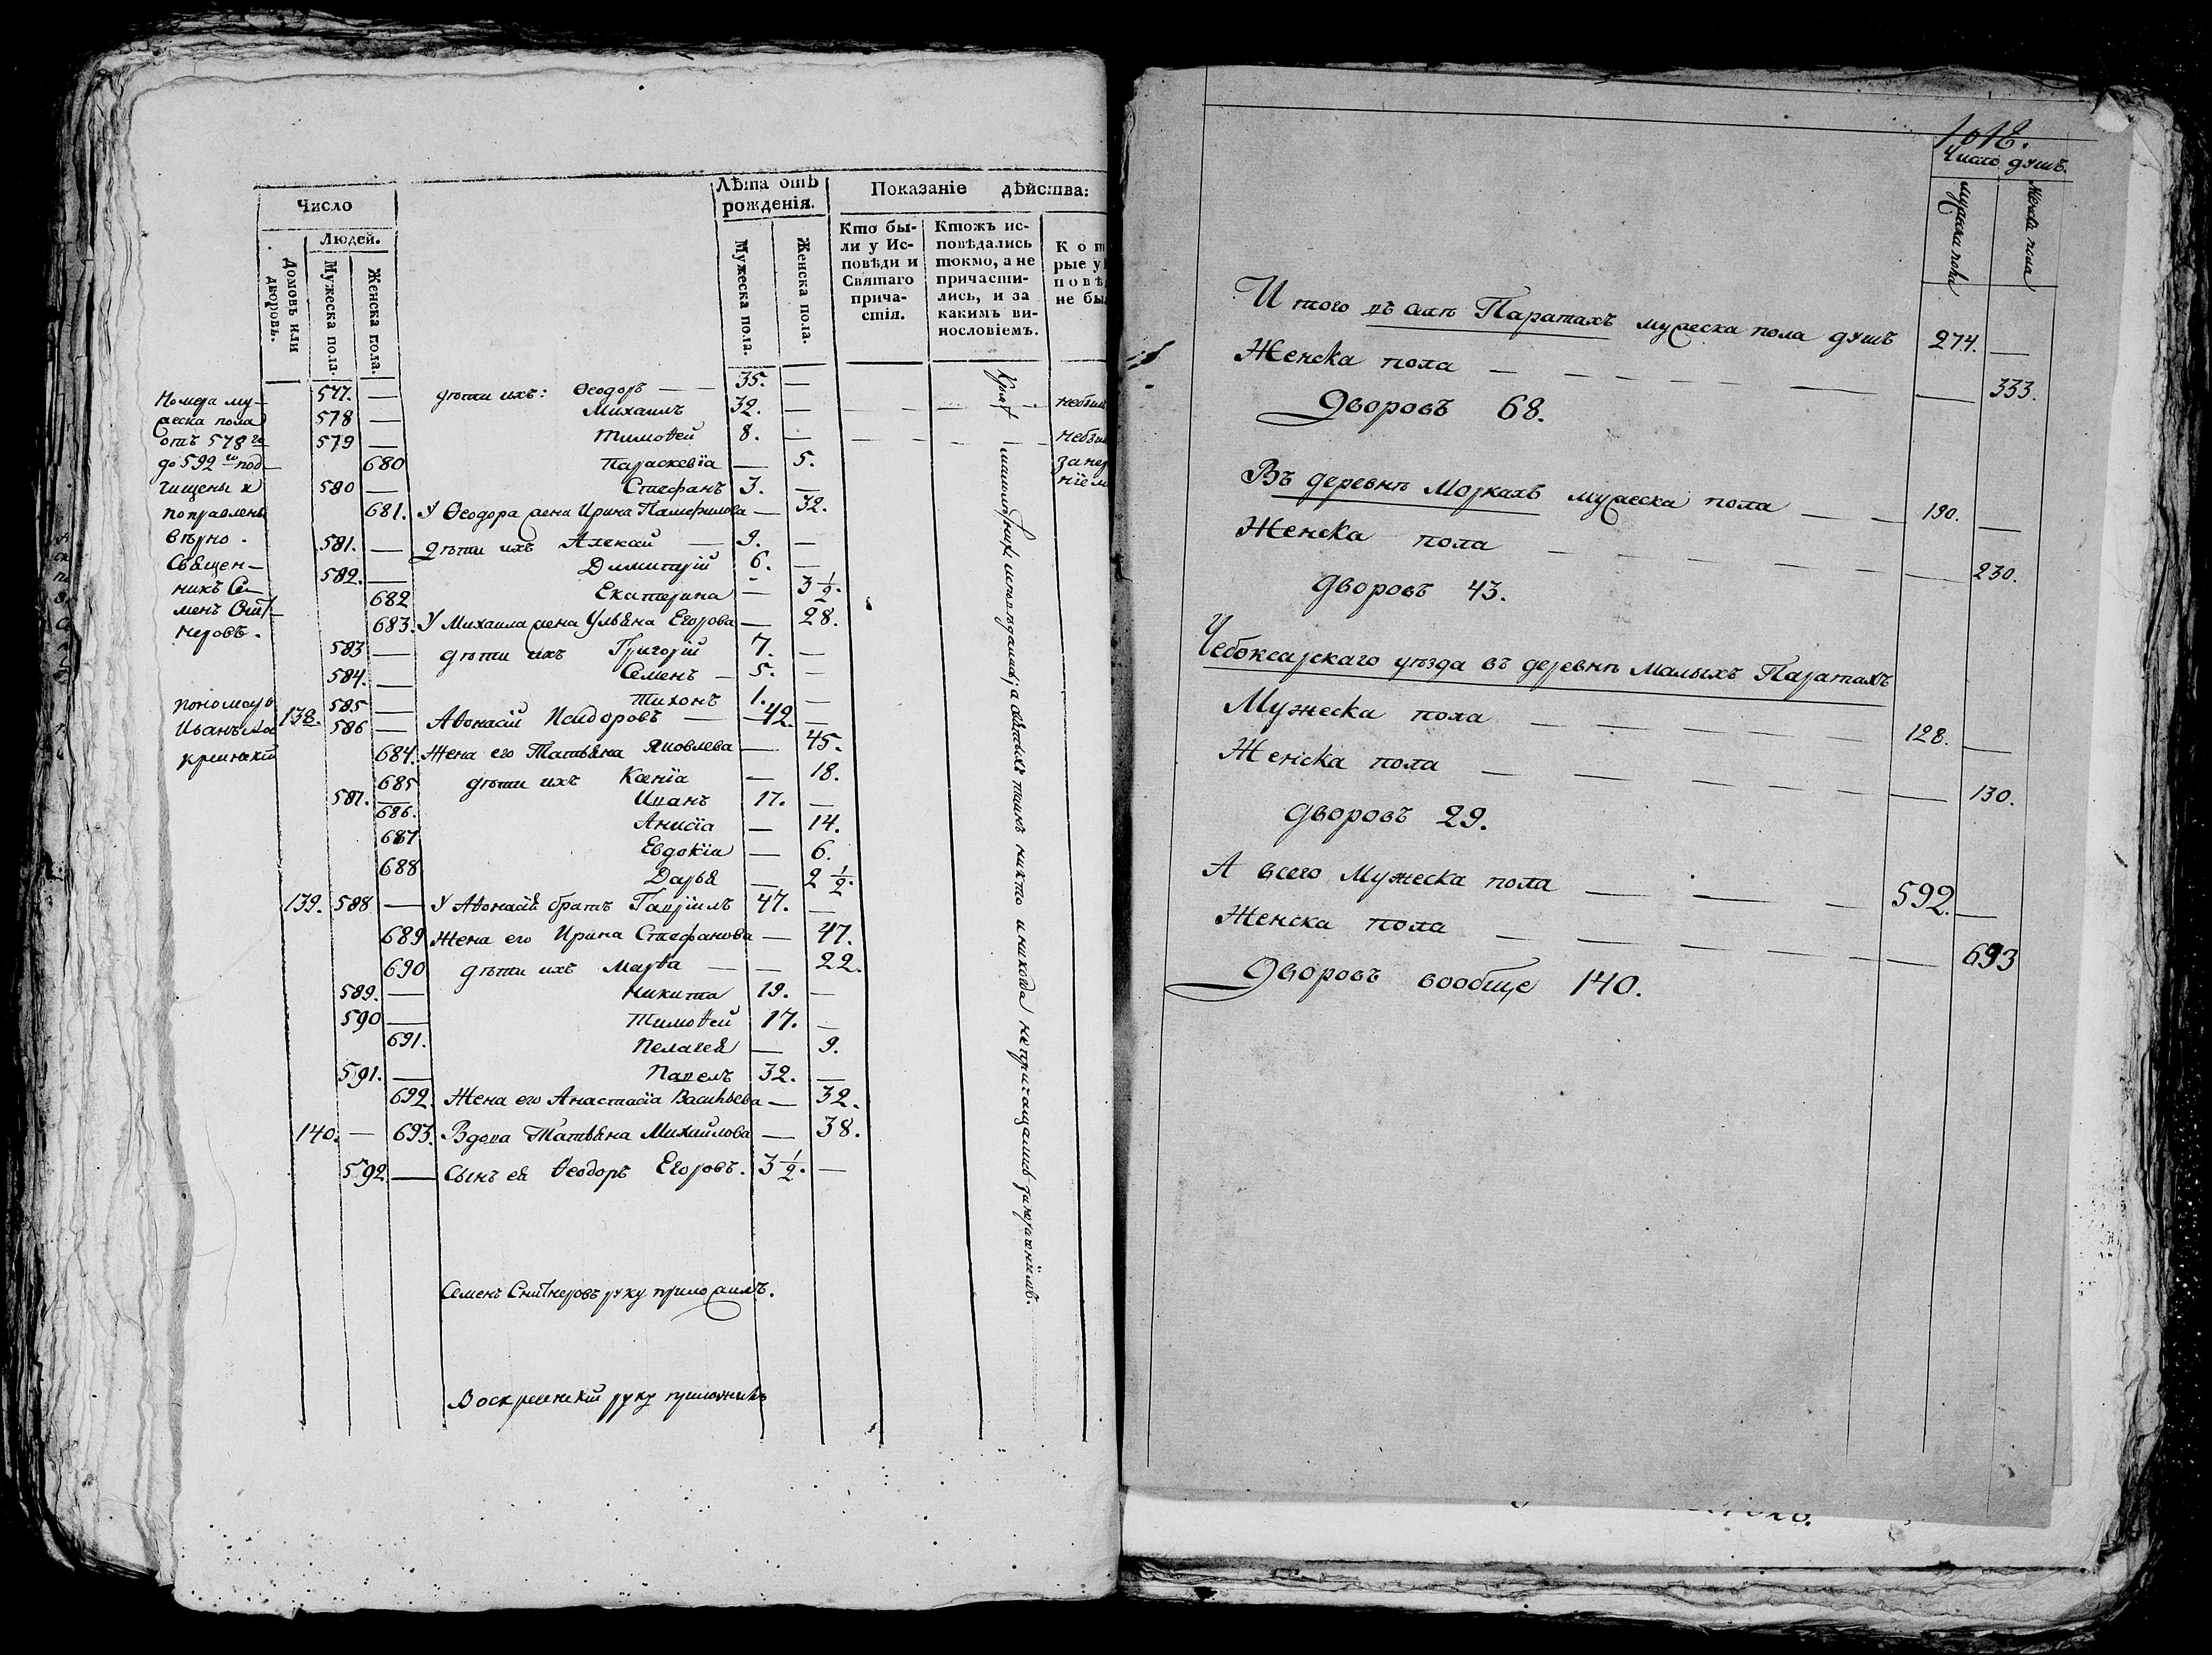 Число
Людей.
Домовъ или дворовъ.
Мужеска пола.
Женска пола.
Лѣта отъ рожденія.
Мужеска пола.
Женска пола.
Показаніе дѣйства:
Кто были у Исповѣди и Святаго причастія.
Ктожъ исповѣдались токмо, а не причастились, и за какимъ винословіемъ.
Номера му-
жеска пола
отъ 578 го
до 592 го под-
чищены и
поправлены
вѣрно.
Священ-
никъ Се-
менъ
неровъ.
пономарь
Иванъ Вос
кресенскій
577. — дѣти ихъ: Ѳеодоръ — 35. —
578 — Михаилъ 32. —
579 — Тимоѳей 8. —
680 Параскевіа — 5.
580 — Стефанъ 3. —
681. У Ѳеодора жена Ирина Памфилова — 32.
581. — дѣти ихъ Алексій — 9. —
582. — Димитрій 6. —
682 Екатерина — 3 1/2.
683. У Михаила жена Ульяна Егорова — 28.
583 — дѣти ихъ Григорій 7. —
584. — Семенъ — 5. —
585 — Тихонъ 1. —
138. 586 — Аѳонасій Исидоровъ — 42. —
684. Жена его Татьяна Яковлева — 45.
685 дѣти ихъ Ксеніа — 18.
587. — Иванъ 17. —
686. Анисіа — 14.
687 Евдокіа — 6.
688 Дарья — 2 1/2.
139. 588 — У Аѳонасія братъ Гавріилъ 47. —
689 Жена его Ирина Стефанова — 47.
690 дѣти ихъ Марѳа — — 22.
589. — Никита 19. —
590 — Тимоѳей 17. —
691. Пелагея — 9.
591. — Павелъ 32. —
692. Жена его Анастасіа Васильева — 32.
140. — 693. Вдова Татьяна Михайлова — 38.
592 — Сынъ ея Ѳеодоръ Егоровъ. 3 1/2. —
никто и никогда не причащались
Семенъ руку приложилъ.
Воскресенскій руку приложилъ
Число душъ.
Мужеска пола
Женска пола
Итого въ селѣ Паратахъ мужеска пола душъ 274. —
Женска пола — — — — — 333.
Дворовъ 68.
Въ деревнѣ Моркахъ мужеска пола — — 190. —
Женска пола — — — — — 230.
Дворовъ 43.
Чебоксарскаго уѣзда въ деревнѣ Малыхъ Паратахъ
Мужеска пола — — — — — 128. —
Женска пола — — — — — 130.
Дворовъ 29.
А всего Мужеска пола — — — 592. —
Женска пола — — — — — 693
Дворовъ вообще 140.